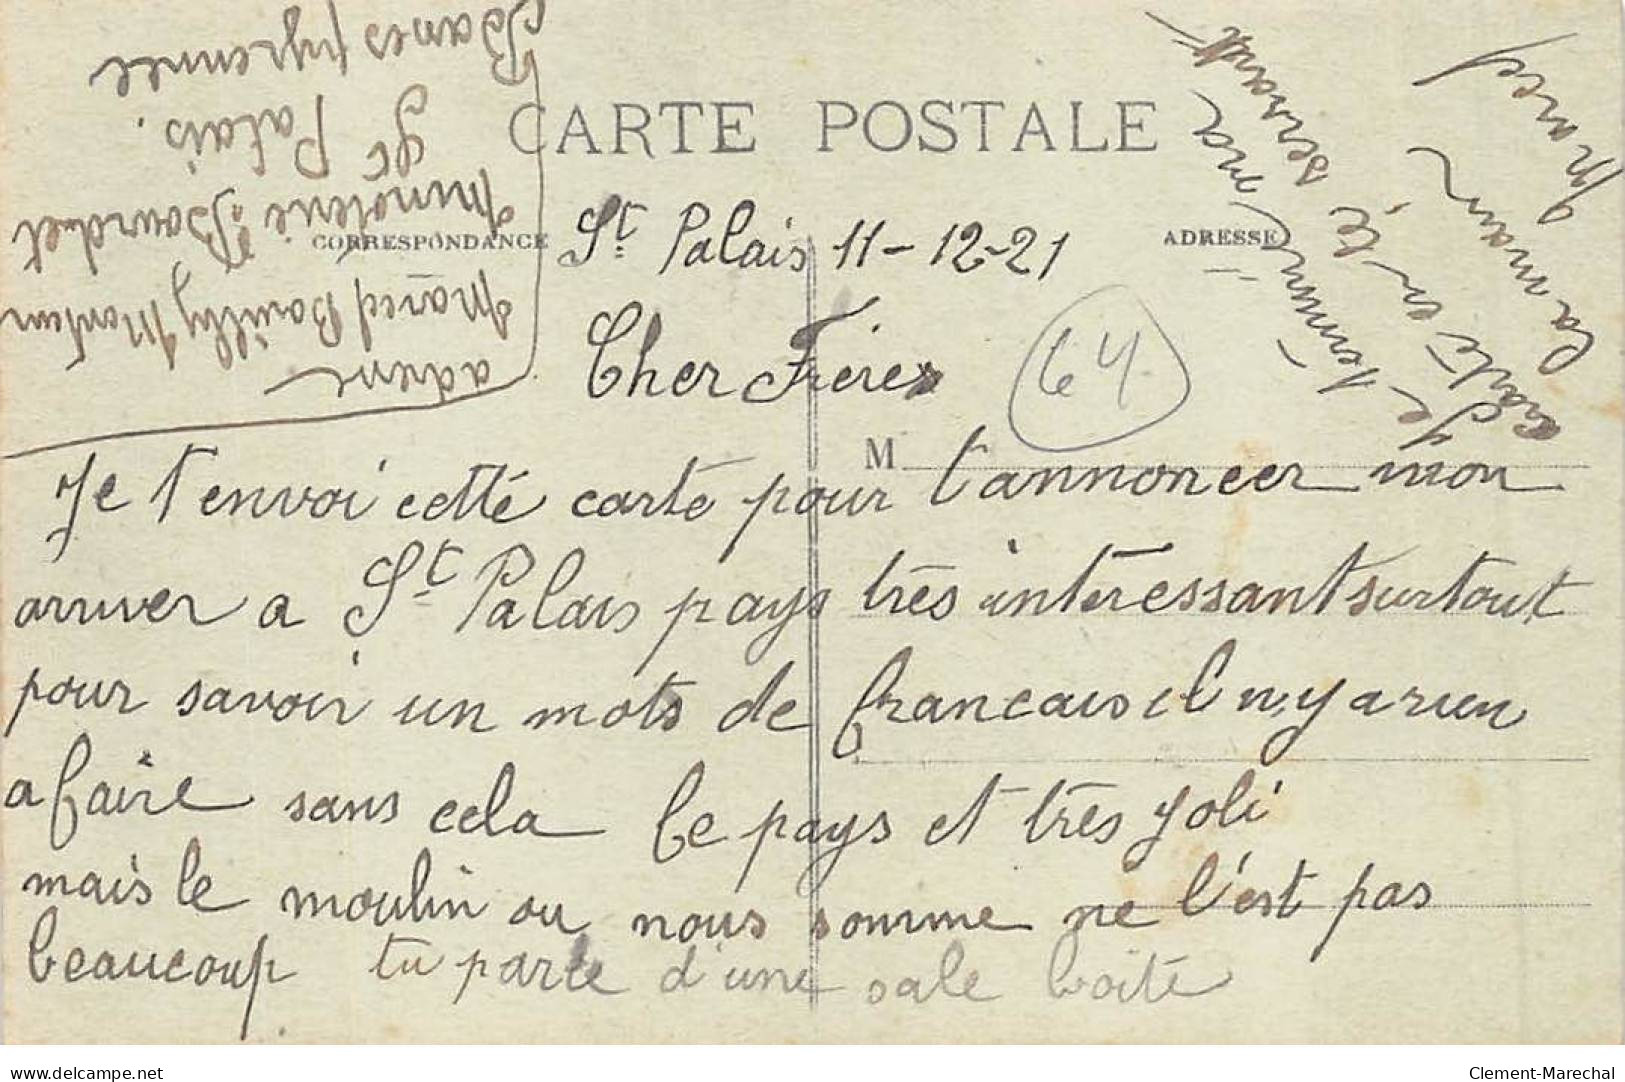 CARTE POSTALE
CORRESPONDANCE
ADRESSE
St Palais 11-12-21
Cher Frere
64
M
Je t'envoi cette carte pour t'annoncer mon
arriver a St Palais pays très interessant surtout
pour savoir un mots de francais il n'y a rien
a faire sans cela le pays et très joli
mais le moulin ou nous somme ne l'est pas
beaucoup tu parle d'une sale boite
Je terminé ma
carte en te serrant
la main
Marcel
adresse
Marcel Bailly Monteur
Minoterie Bourdet
St Palais.
Basses pyrennée
www.delcampe.net
Clement-Marechal